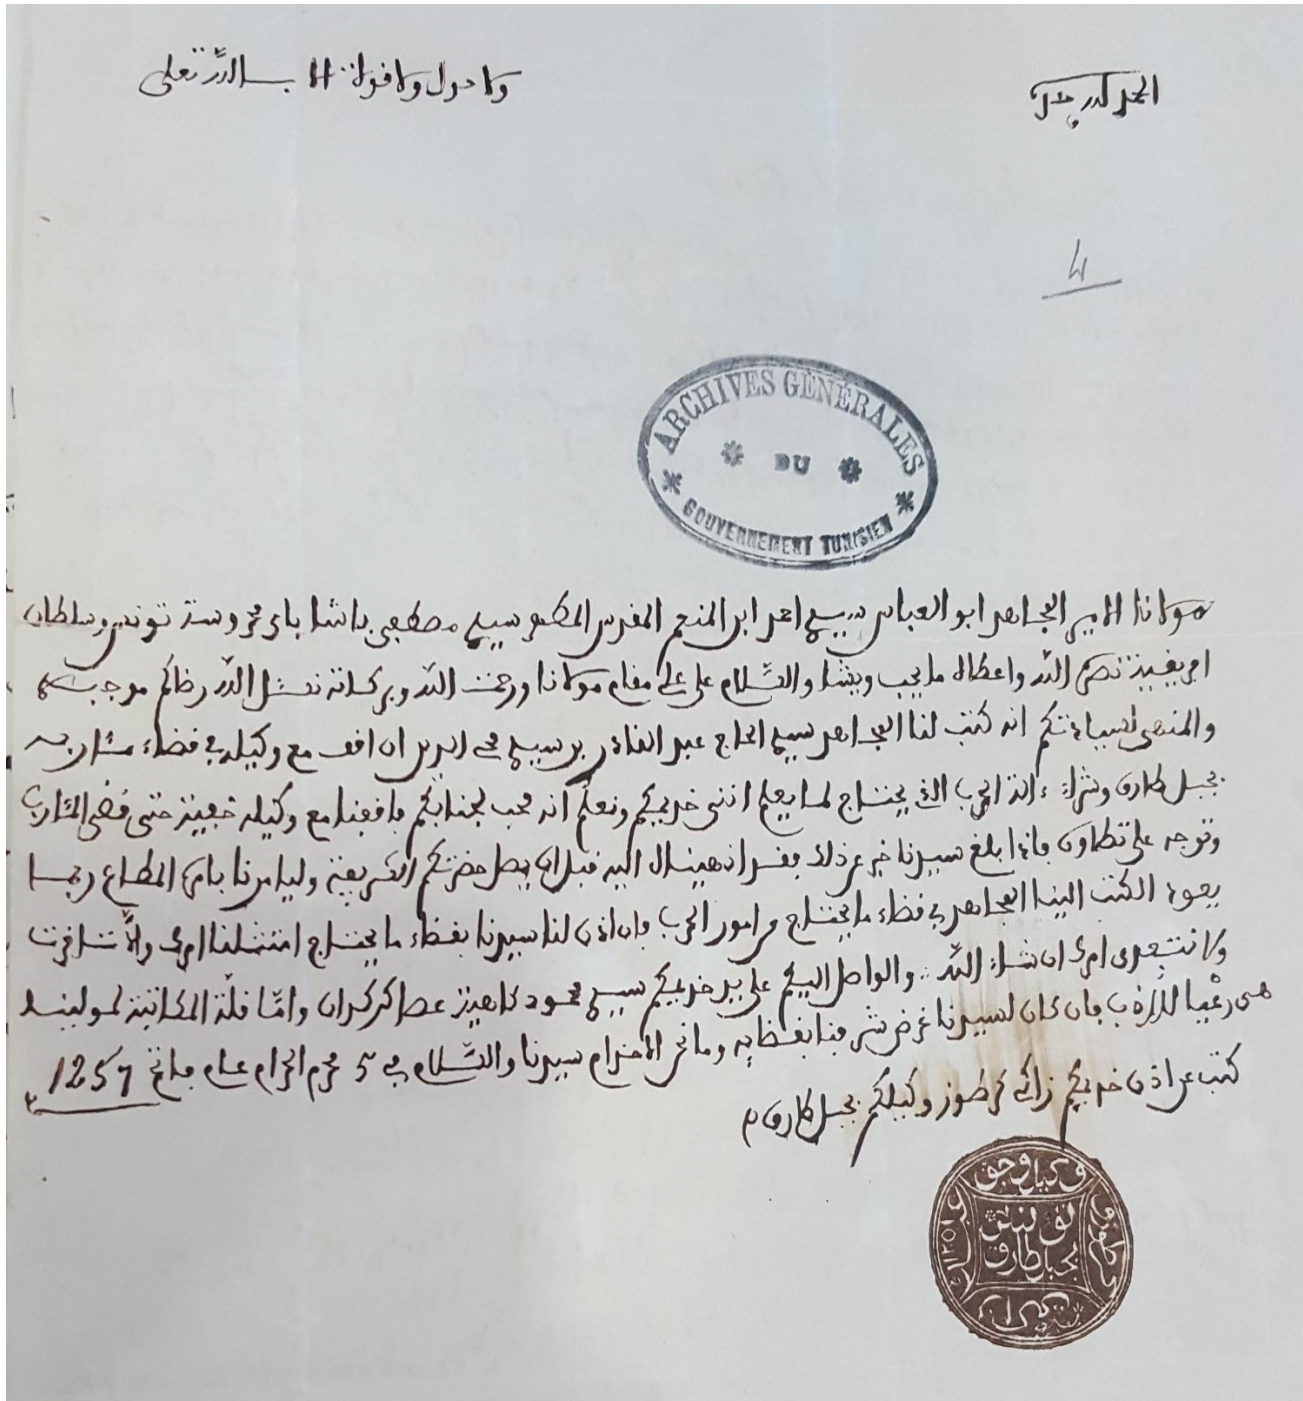 الحمد لله وحده
ولا حول ولا قوة الا بالله تعلى
4
ARCHIVES GÉNÉRALES
DU
GOUVERNEMENT TUNISIEN
مولانا الامير المجاهد ابو العباس سيدي احمد ابن المنعم المقدس سيدي مصطفى باشا باي محروسة تونس وسلطان
افريقية نصره الله واعطاه ما يحب ويشا والسلام على علي مقام مولانا ورحمت الله وبركاته نسئل الله رضاكم
والمنهى لسيادتكم انه كتب لنا المجاهد سيدي الحاج عبد القادر بن سيدي محي الدين ان اقف مع وكيله في قضاء مئاربه
بجبل طارق وشراء ءالة الحرب الذي يحتاج لما يعلم انني خديمكم ونعلم انه محب لجنابكم فاقفنا مع وكيله خفية حتى قضى المئارب
وتوجه على تطاون فاذا بلغ سيدنا خبر عن ذلك فقد قبل ان يصل حضرتكم الشريفة وليامرنا بامره المطاع ربما
يعود الكتب الينا المجاهد في قضاء ما يحتاج من امور الحرب فان اذن لنا سيدنا بقضاء ما يحتاج امتثلنا امره والا
ولا نتعدى امره ان شاء الله والواصل اليكم على يد خديمكم سيدي محمود كاهية وامّا قلّة المكاتبة
فان كان لسيدنا غرض وما نحن الا خدام سيدنا والسّلام في 5 محرم الحرام عام فاتح 1257
كتب عن اذن خديمكم قرطوزو وكيلكم بجبل طارق
وكيل وجق
تونس
بجبل طارق
١٢٥١